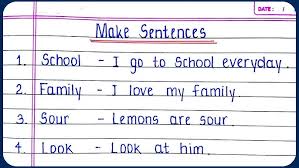 DATE: /
Make Sentences
1. School - I go to school everyday.
2. Family - I love my family.
3. Sour - Lemons are sour.
4. Look - Look at him.